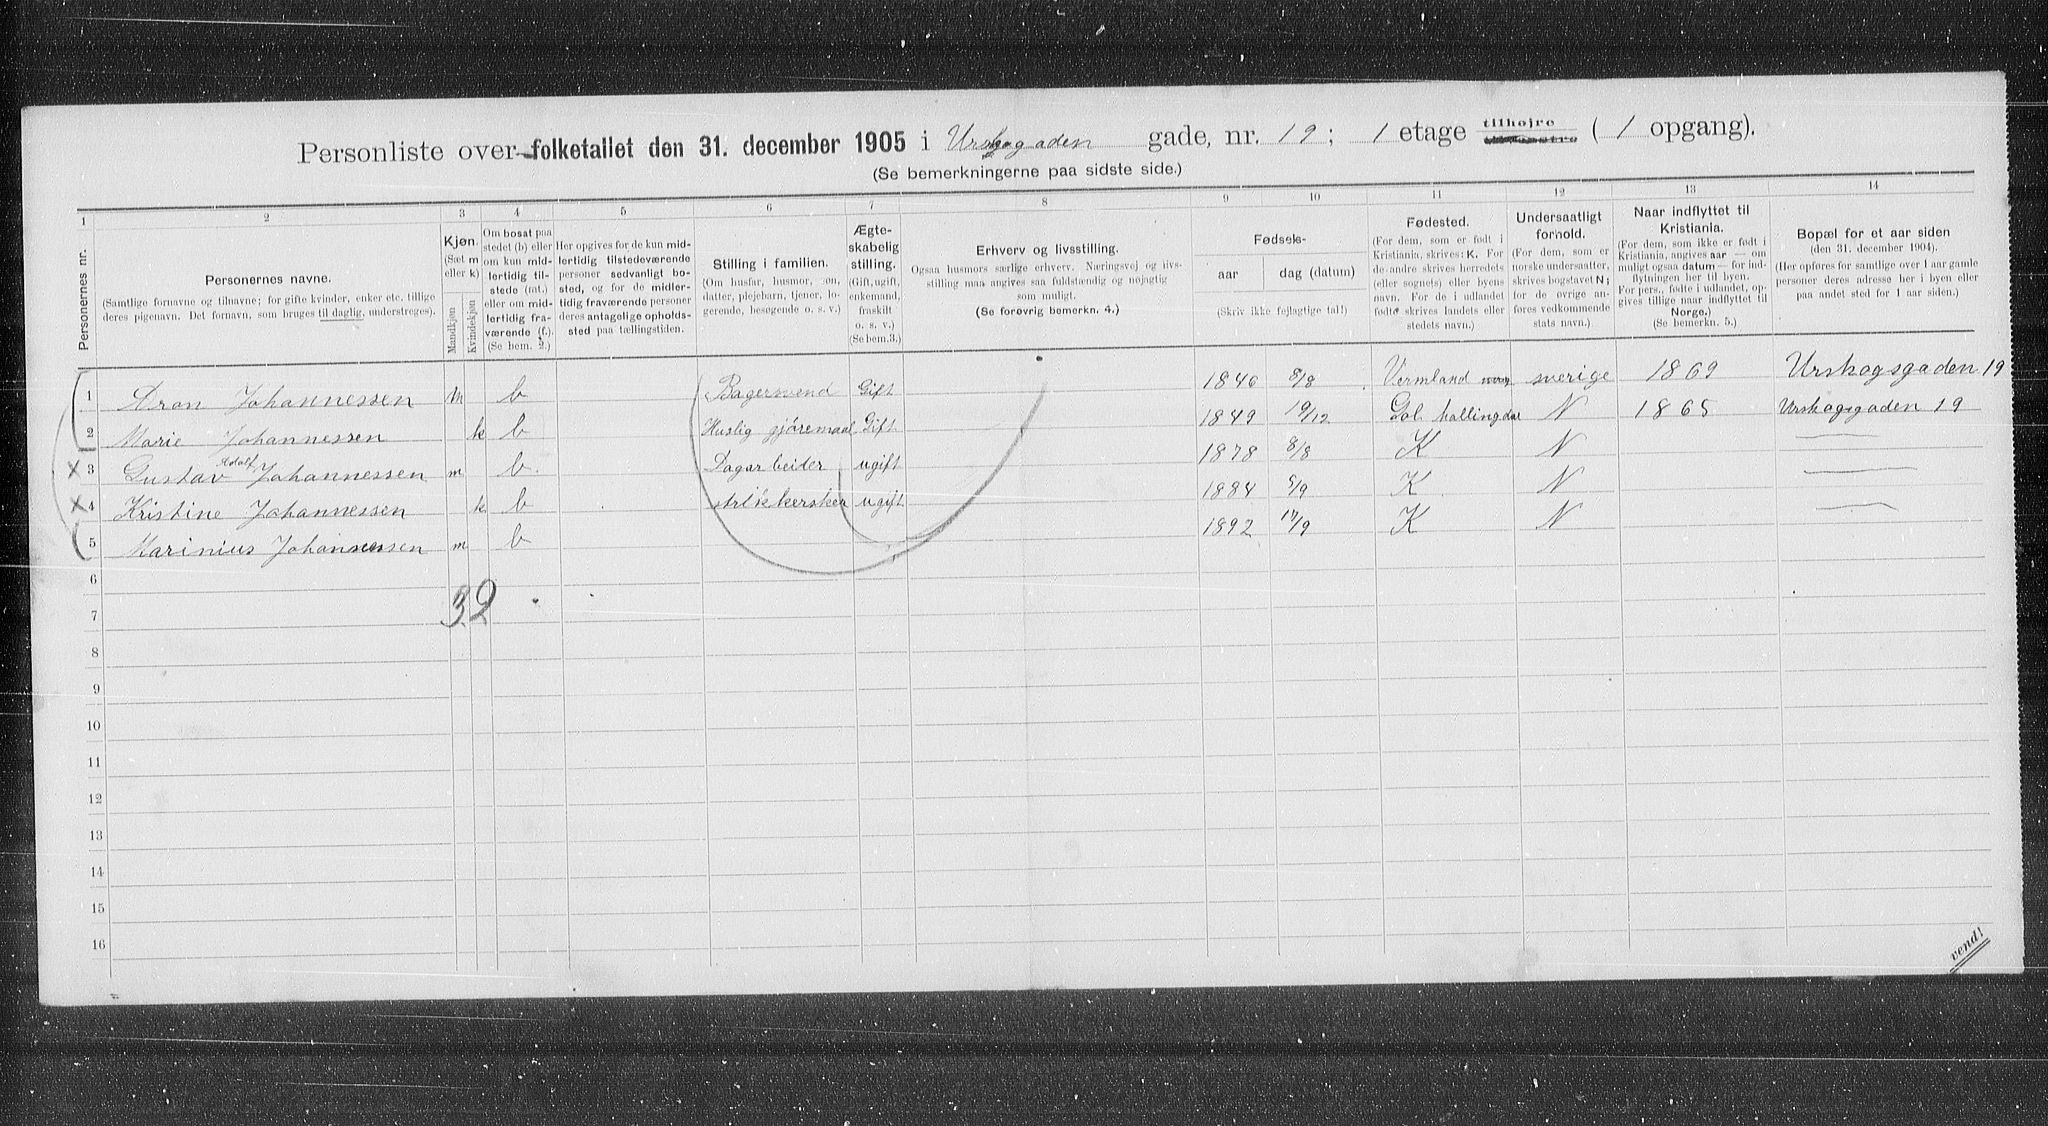 Personliste over folketallet den 31. december 1905 i Urskogsgaden gade, nr. 19; 1 etage tilhøjre tilvenstre (1 opgang).
(Se bemerkningerne paa sidste side.)
1 2 3 4 5 6 7 8 9 10 11 12 13 14
Personernes nr.
Personernes navne.
(Samtlige fornavne og tilnavne; for gifte kvinder, enker etc. tillige
deres pigenavn. Det fornavn, som bruges til daglig, understreges).
Kjøn.
(Sæt m
eller k)
Mandkjøn
Kvindekjøn
Om bosat paa
stedet (b) eller
om kun mid-
lertidig til-
stede (mt.)
eller om mid-
lertidig fra-
værende (f.)
(Se bem. 2.)
Her opgives for de kun mid-
lertidig tilstedeværende
personer sedvanligt bo-
sted, og for de midler-
tidig fraværende personer
deres antagelige opholds-
sted paa tællingstiden.
Stilling i familien.
(Om husfar, husmor, søn,
datter, plejebarn, tjener, lo-
gerende, besøgende o. s. v.)
Ægte-
skabelig
stilling.
(Gift, ugift,
enkemand,
fraskilt
o. s. v.)
(Se bem. 3.)
Erhverv og livsstilling.
Ogsaa husmors særlige erhverv. Næringsvej og livs-
stilling maa angives saa fuldstændig og nøjagtig
som muligt.
(Se forøvrig bemerkn. 4.)
Fødsels-
aar dag (datum)
(Skriv ikke fejlagtige tal!)
Fødested.
(For dem, som er født i
Kristiania, skrives: K. For
de andre skrives herredets
(eller sognets) eller byens
navn. For de i udlandet
fødte skrives landets eller
stedets navn.)
Undersaatligt
forhold.
(For dem, som er
norske undersaatter,
skrives bogstavet N;
for de øvrige an-
føres vedkommende
stats navn.)
Naar indflyttet til
Kristiania.
(For dem, som ikke er født i
Kristiania, angives aar — om
muligt ogsaa datum — for ind-
flytningen her til byen.
For pers., fødte i udlandet, op-
gives tillige naar indflyttet til
Norge.)
(Se bemerkn. 5.)
Bopæl for et aar siden
(den 31. december 1904).
(Her opføres for samtlige over 1 aar gamle
personer deres adresse her i byen eller
paa andet sted for 1 aar siden.)
1 Aron Johannessen m b Bagersvend Gift 1846 8/8 Vermland sverige 1869 Urskogsgaden 19
2 Marie Johannessen k b Huslig gjøremaal Gift 1849 19/12 Gol hallingdal N 1865 Urskogsgaden 19
X 3 Gustav Adolf Johannessen m b Dagarbeider ugift 1878 8/8 K N
X 4 Kristine Johannessen k b strikkerske ugift 1884 5/9 K N
5 Marinius Johannessen m b 1892 17/9 K N
6
32
7
8
9
10
11
12
13
14
15
16
vend!